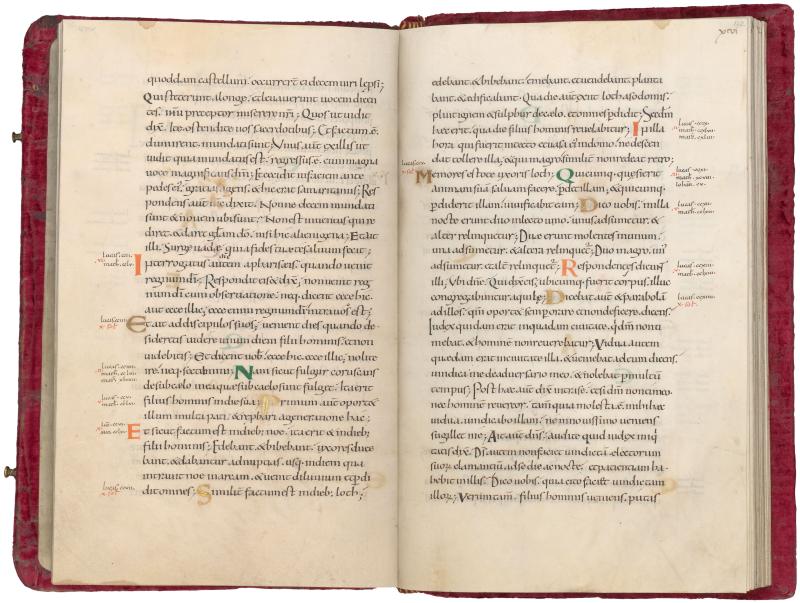 quoddam castellum. occurrert ei decem uiri leprsi;
Qui steterunt alonge. & leuauerunt uocem dicen
tes. ihu preceptor miserere nri; Quos ut uidit
dix. Ite ostendite uos sacerdotibus; Et factum e.
dum irent. mundati sunt; Vnus aut ex illis ut
uidit quia mundatus est. regressus e. cum magna
uoce magnificans dm; Et cecidit in faciem ante
pedes ei. gratias agens. & hic erat samaritanus; Res
pondens aut ihs dixit. Nonne decem mundati
sunt & nouem ubi sunt; Non est inuentus qui re
diret. & daret glam do. nisi hic alienigena; Et ait
illi. Surge uade. quia fides tua te saluum fecit;
Interrogatus autem apharisaeis. quando uenit
regnum di; Respondit eis & dix. non uenit reg
num di cum obseruatione. neq; dicent ecce hic.
aut ecce illic. ecce enim regnum di intra uos est;
Et ait ad discipulos suos; uenient dies quando de
sideretis uidere unum diem filii hominis. & non
uidebitis; Et dicent uob. ecce hic. ecce illic; nolite
ire. neq; sectabimini; Nam sicut fulgur coruscans
de sub caelo in ea quae sub caelo sunt fulget. ita erit
filius hominis in die sua; Primum aut oport&
illum multa pati. & reprobari ageneratione hac;
Et sicut factum est in dieb; noe. ita erit & in dieb;
filii hominis; Edebant. & bibebant. uxores duce
bant. & dabantur ad nuptias. usq; in diem qua
intrauit noe in arcam. & uenit diluuium & perdi
dit omnes; Similit factum est in dieb; loth;
xcvi
edebant. & bibebant. emebant. & uendebant. planta
bant. & aedificabant. Qua die aut exiit loth asodomis.
pluit ignem & sulphur de caelo. & omnes pdidit; Scdm
haec erit. qua die filius hominis reuelabitur; In illa
hora qui fuerit in tecto & uasa ei in domo. ne descen
dat tollere illa. & qui in agro similit non redeat retro;
Memores estote uxoris loth; Quicumq; quesierit
animam suam saluam facere. pdet illam. & quicumq;
pdiderit illam. uiuificabit eam; Dico uobis. in illa
nocte erunt duo in lecto uno. unus adsumetur. &
alter relinquetur; Duae erunt molentes in unum.
una adsumetur. & altera relinquetur; Duo in agro. un
adsumetur. & alter relinquetur; Respondentes dicunt
illi. Vbi dne; Qui dixit eis. ubicumq; fuerit corpus. illuc
congregabuntur aquile; Dicebat aut & parabola
ad illos. qm oportet semp orare & non deficere. dicens;
Iudex quidam erat in quadam ciuitate. qui dm non ti
mebat. & hominem non reuerebatur; Vidua autem
quaedam erat in ciuitate illa. & ueniebat ad eum dicens.
uindica me de aduersario meo. & nolebat p multum
tempus; Post haec aut dix intra se. & si dm non timeo
nec hominem reuereor. tam quia molesta e. mihi haec
uidua. uindicabo illam. ne in nouissimo ueniens
sugillet me; Ait aut dns. audite quid iudex iniq
tatis dix; Ds autem non faciet uindictam electorum
suorum clamantium ad se die ac nocte. & patientiam ha
bebit in illis; Dico uobis. quia cito faciet uindictam
illorum; Verumtam. filius hominis ueniens. putas